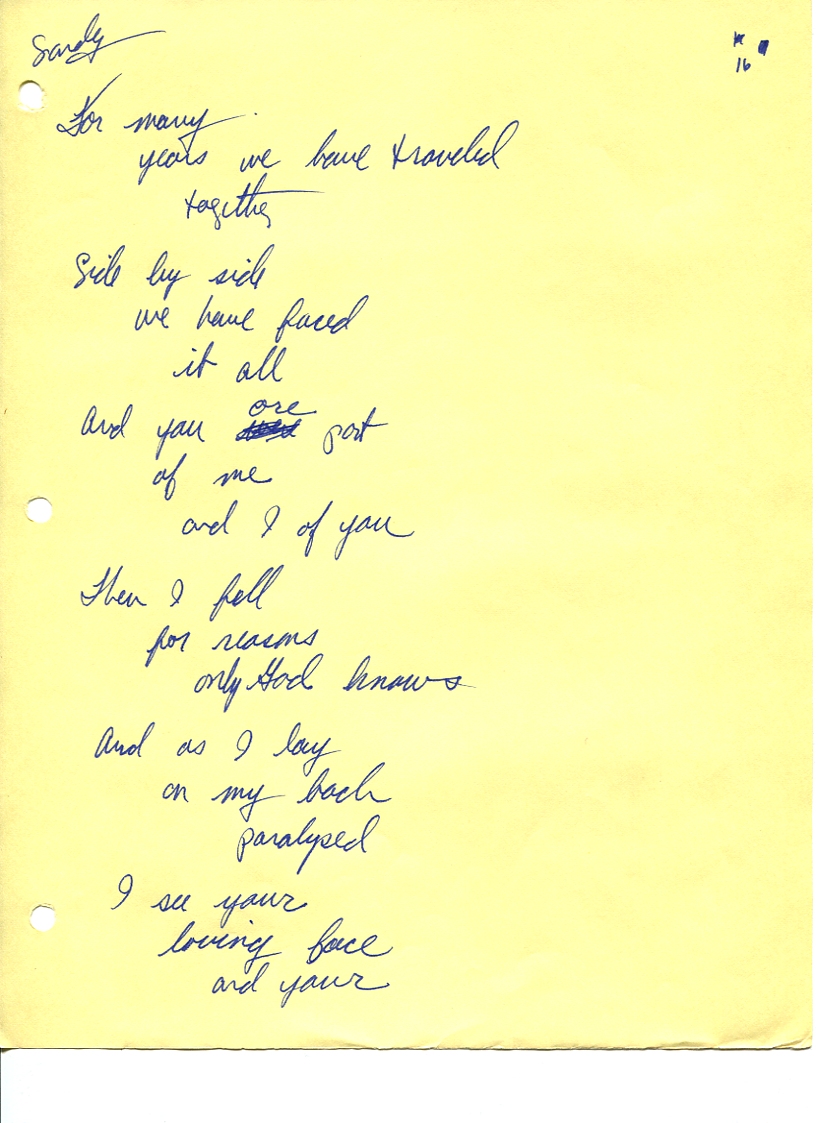 Sandy
16
For many
years we have traveled
together
Side by side
we have faced
it all
And you are part
of me
and I of you
Then I fell
for reasons
only God knows
And as I lay
on my back
paralysed
I see your
loving face
and your